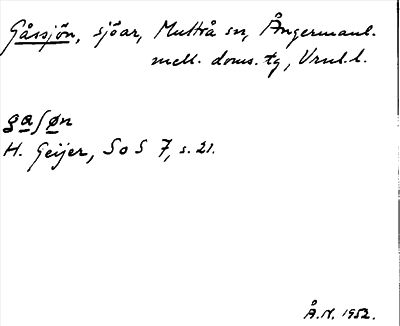 Gåssjön, sjöar, Multrå sn, Ångermanl.
mell. doms. tg, Vrnl. l.
gaʃøn
H. Geijer, SoS 7, s. 21.
Å.N. 1952.